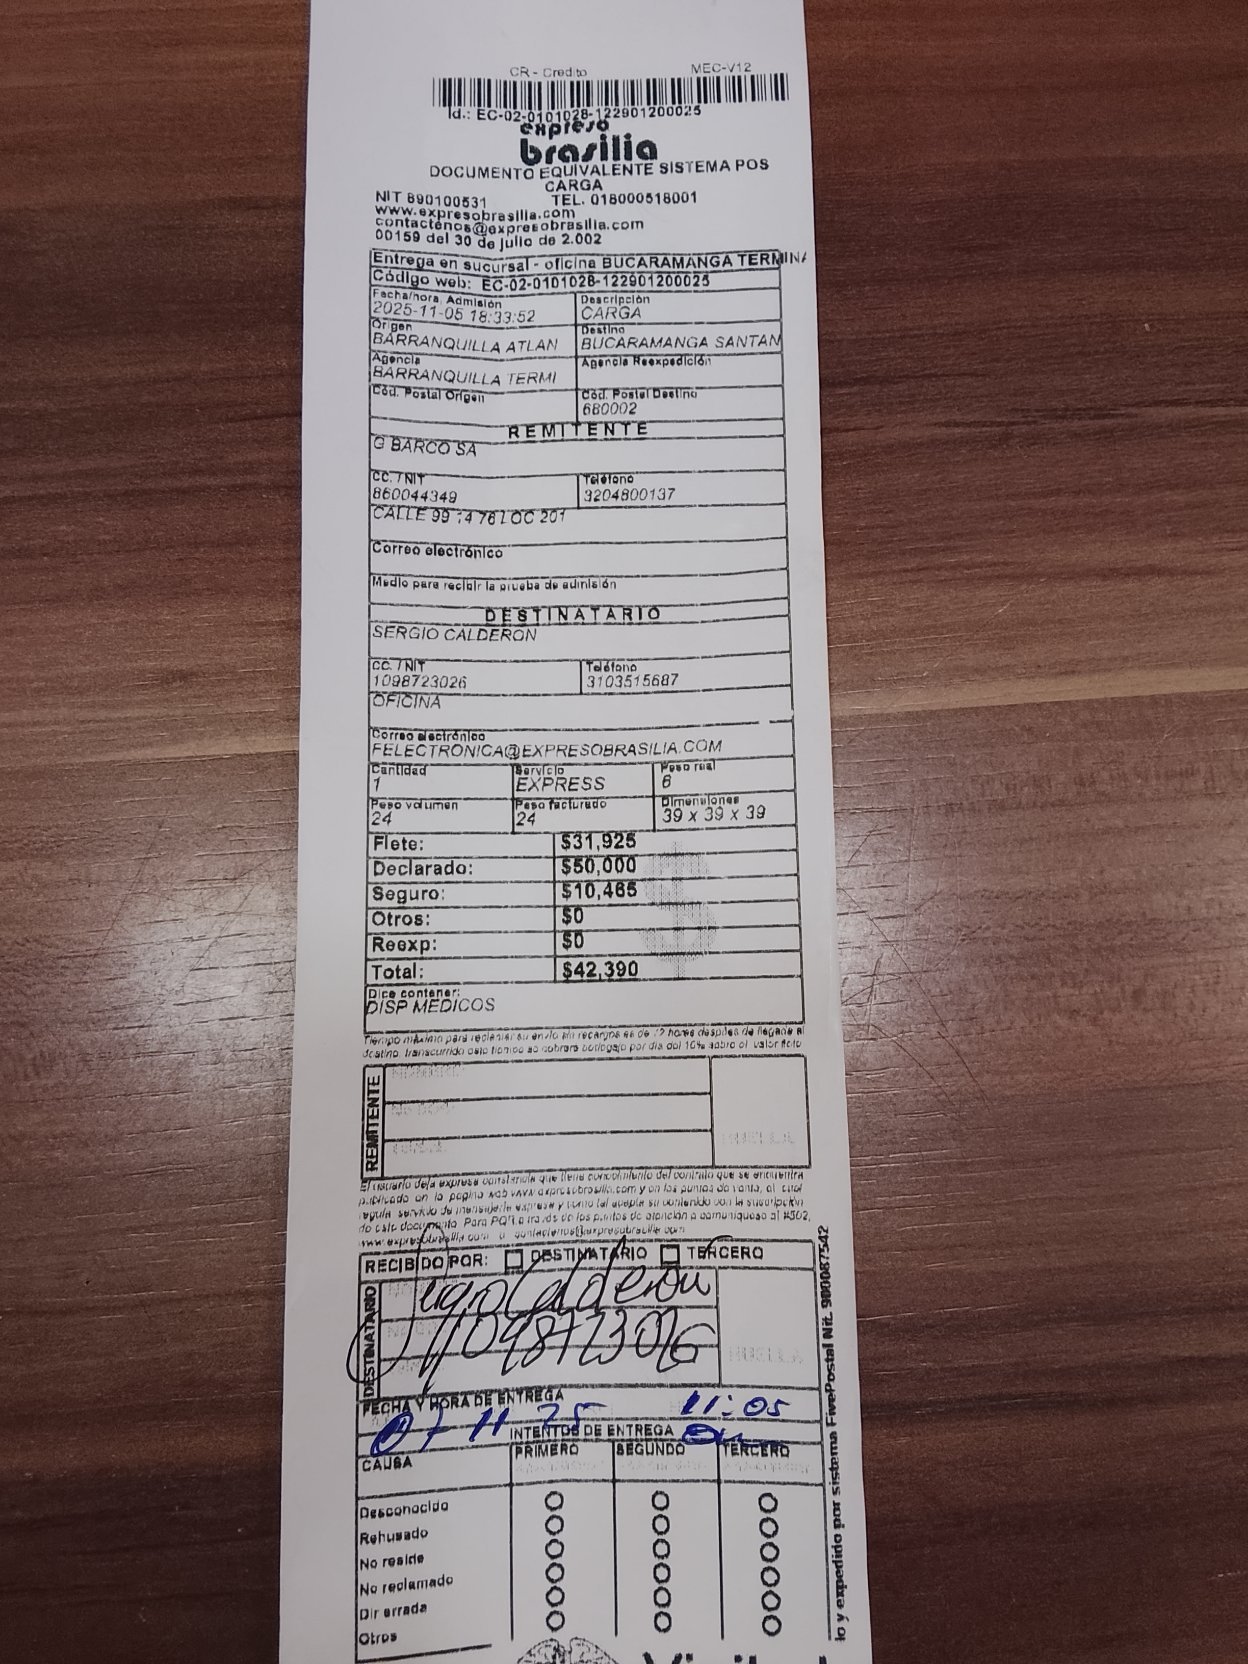 CR - Credito MEC-V12
Id.: EC-02-0101028-122901200025
expreso
brasilia
DOCUMENTO EQUIVALENTE SISTEMA POS
CARGA
NIT 890100531 TEL. 018000518001
www.expresobrasilia.com
contactenos@expresobrasilia.com
00159 del 30 de julio de 2.002
Entrega en sucursal - oficina BUCARAMANGA TERMINA
Código web: EC-02-0101028-122901200025
Fecha/hora, Admisión Descripción
2025-11-05 18:33:52 CARGA
Origen Destino
BARRANQUILLA ATLAN BUCARAMANGA SANTAN
Agencia Agencia Reexpedición
BARRANQUILLA TERMI
Cód. Postal Origen Cód. Postal Destino
680002
REMITENTE
G BARCO SA
CC. / NIT Teléfono
860044349 3204800137
CALLE 99 14 76 LOC 201
Correo electrónico
Medio para recibir la prueba de admisión
DESTINATARIO
SERGIO CALDERON
CC. / NIT Teléfono
1098723026 3103515687
OFICINA
Correo electrónico
FELECTRONICA@EXPRESOBRASILIA.COM
Cantidad Servicio Peso real
1 EXPRESS 6
Peso volumen Peso facturado Dimensiones
24 24 39 x 39 x 39
Flete: $31,925
Declarado: $50,000
Seguro: $10,465
Otros: $0
Reexp: $0
Total: $42,390
Dice contener:
DISP MEDICOS
Tiempo máximo para reclamar su envío sin recargos es de 72 horas después de llegada al
destino, transcurrido este tiempo se cobrará bodegaje por día del 10% sobre el valor flete
REMITENTE
HUELLA
El usuario deja expresa constancia que tiene conocimiento del contrato que se encuentra
publicado en la pagina web www.expresobrasilia.com y en los puntos de venta, el cual
regula servicio de mensajería expresa y como tal acepta su contenido con la suscripción
de este documento. Para PQR a través de los puntos de atención o comuníquese al #502,
www.expresobrasilia.com o contactenos@expresobrasilia.com
RECIBIDO POR: DESTINATARIO TERCERO
DESTINATARIO
Sergio Calderon
1098723026
HUELLA
FECHA Y HORA DE ENTREGA
07 11 25 11:05
INTENTOS DE ENTREGA
CAUSA PRIMERO SEGUNDO TERCERO
Desconocido
Rehusado
No reside
No reclamado
Dir errada
Otros
lo y expedido por sistema FivePostal Nit. 900087542